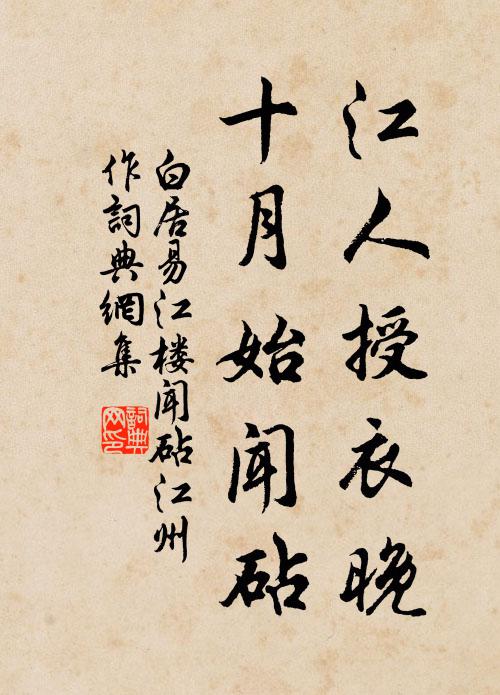 江人授衣晚
十月始闻砧
白居易江楼闻砧江州
作詞典網集
詞典
网印